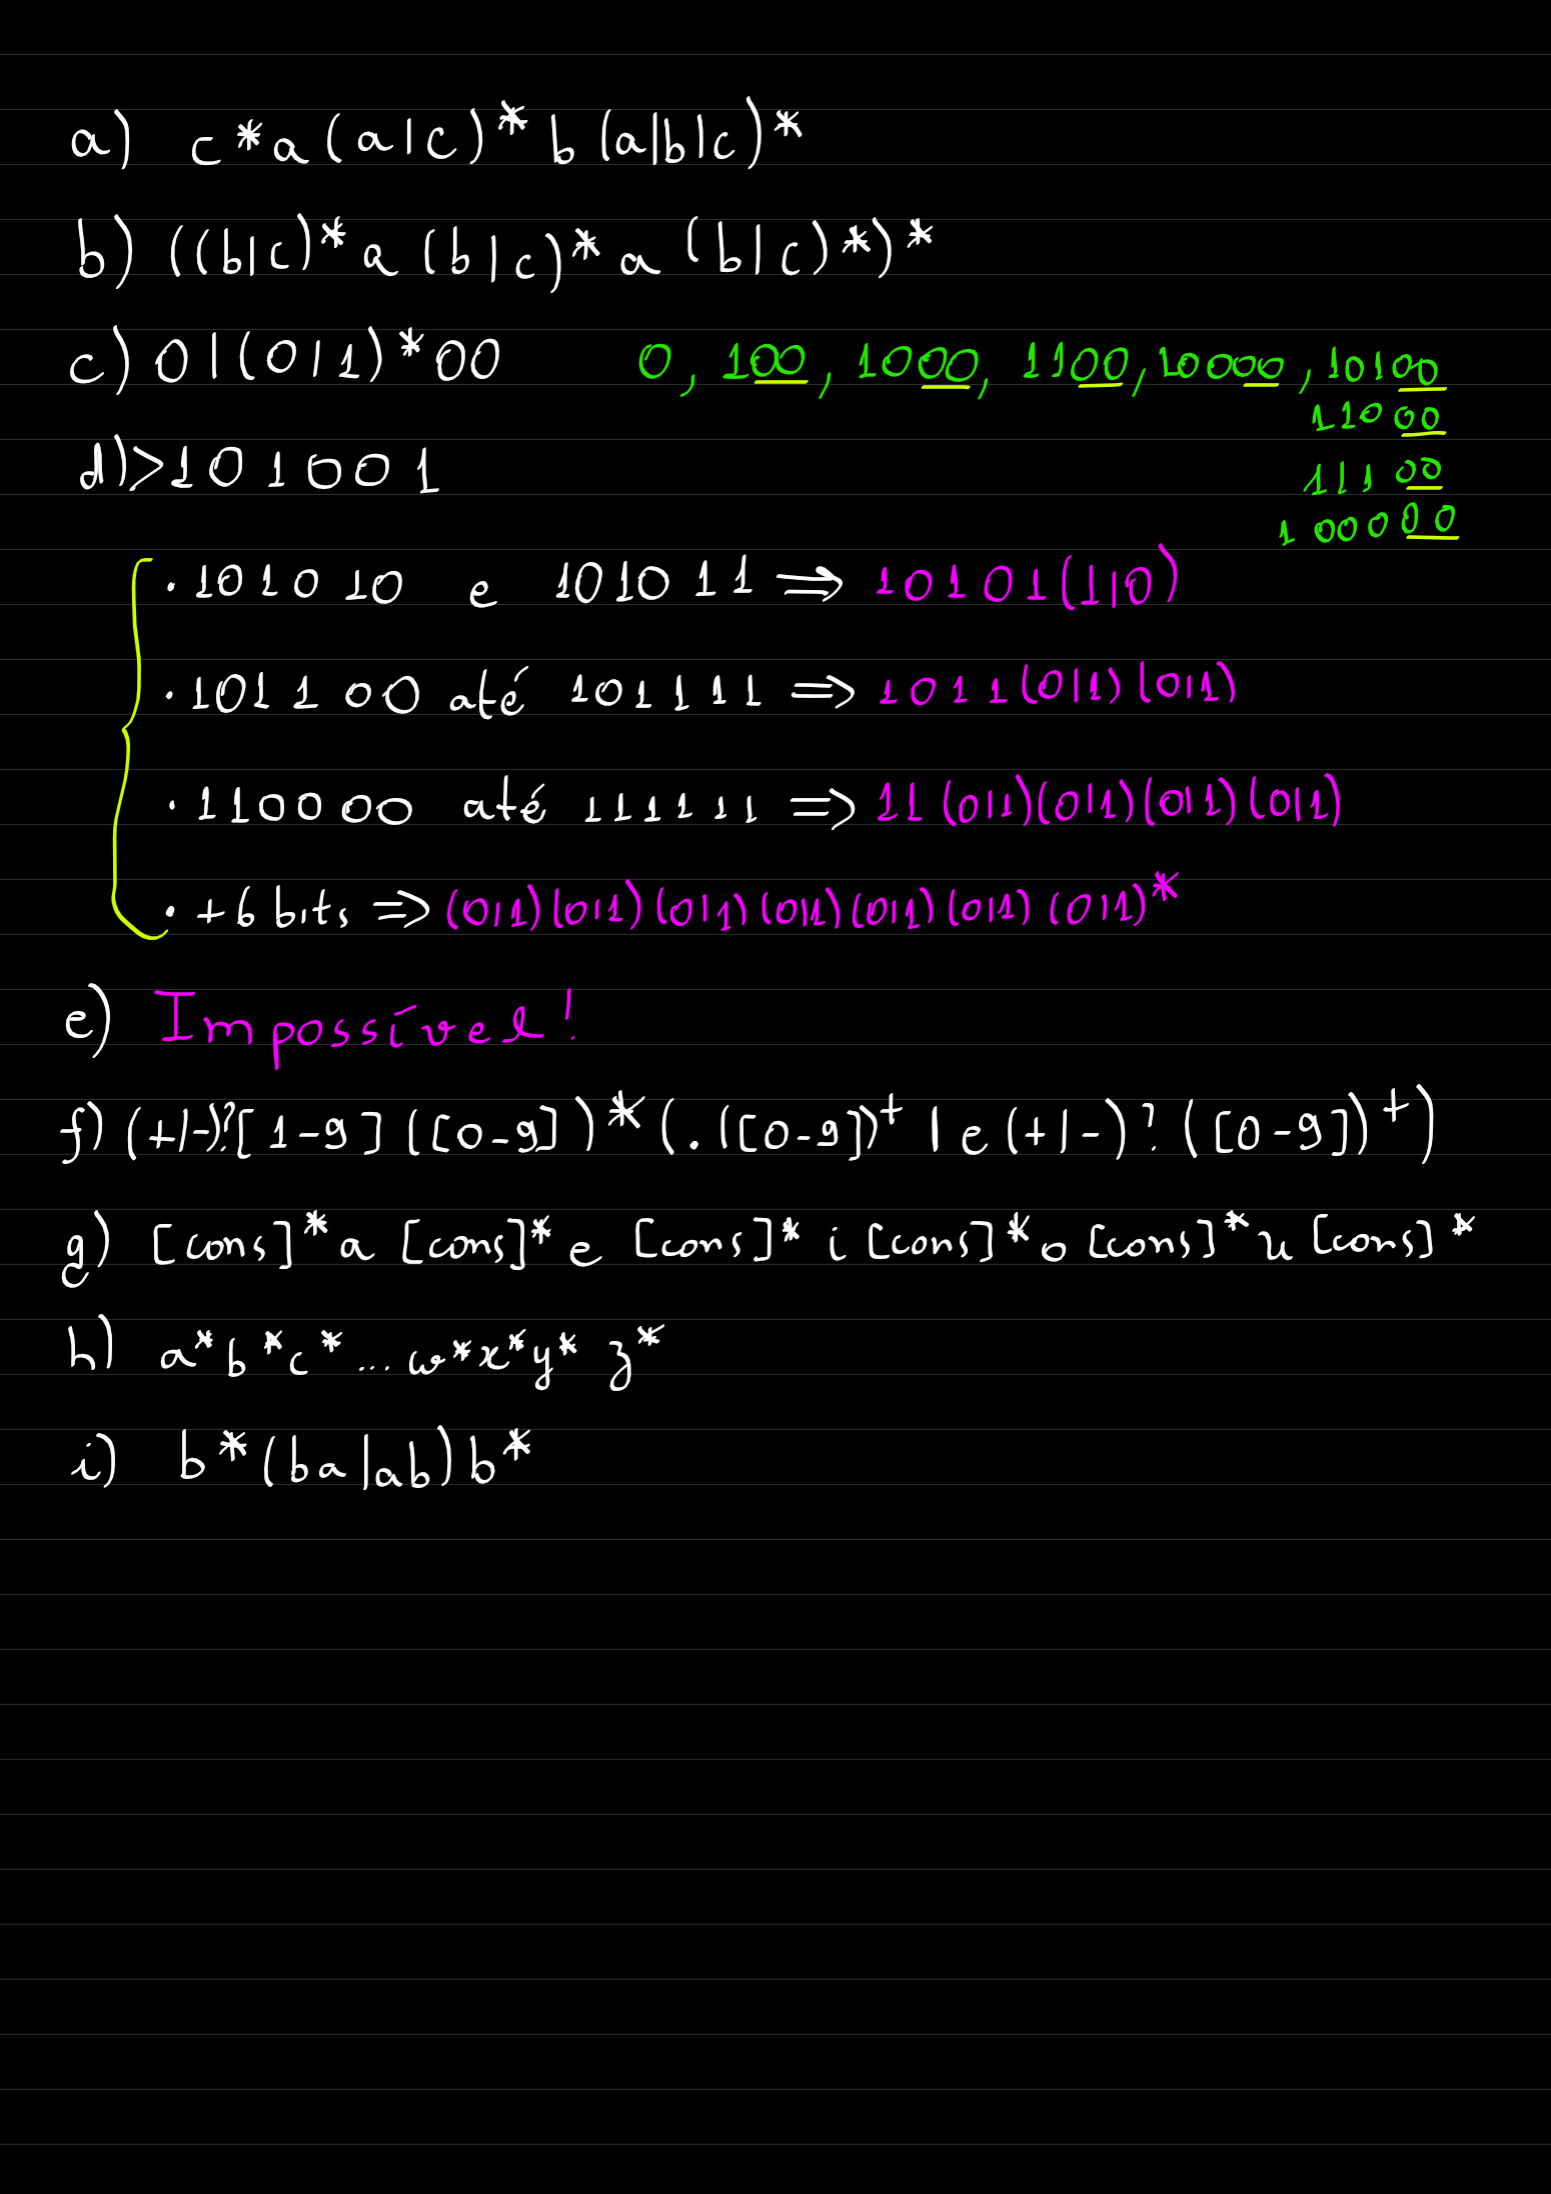 a) c*a(a|c)*b(a|b|c)*
b) ((b|c)*a(b|c)*a(b|c)*)*
c) 0|(0|1)*00 0, 100, 1000, 1100, 10000, 10100
11000
11100
1000000
d) >101001
. 101010 e 101011 => 10101(1|0)
. 101100 até 101111 => 1011(0|1)(0|1)
. 110000 até 111111 => 11(0|1)(0|1)(0|1)(0|1)
. +6 bits => (0|1)(0|1)(0|1)(0|1)(0|1)(0|1)(0|1)*
e) Impossível!
f) (+|-)?[1-9]([0-9])*(.([0-9])+|e(+|-)?([0-9])+)
g) [cons]*a[cons]*e[cons]*i[cons]*o[cons]*u[cons]*
h) a*b*c*...w*x*y*z*
i) b*(ba|ab)b*